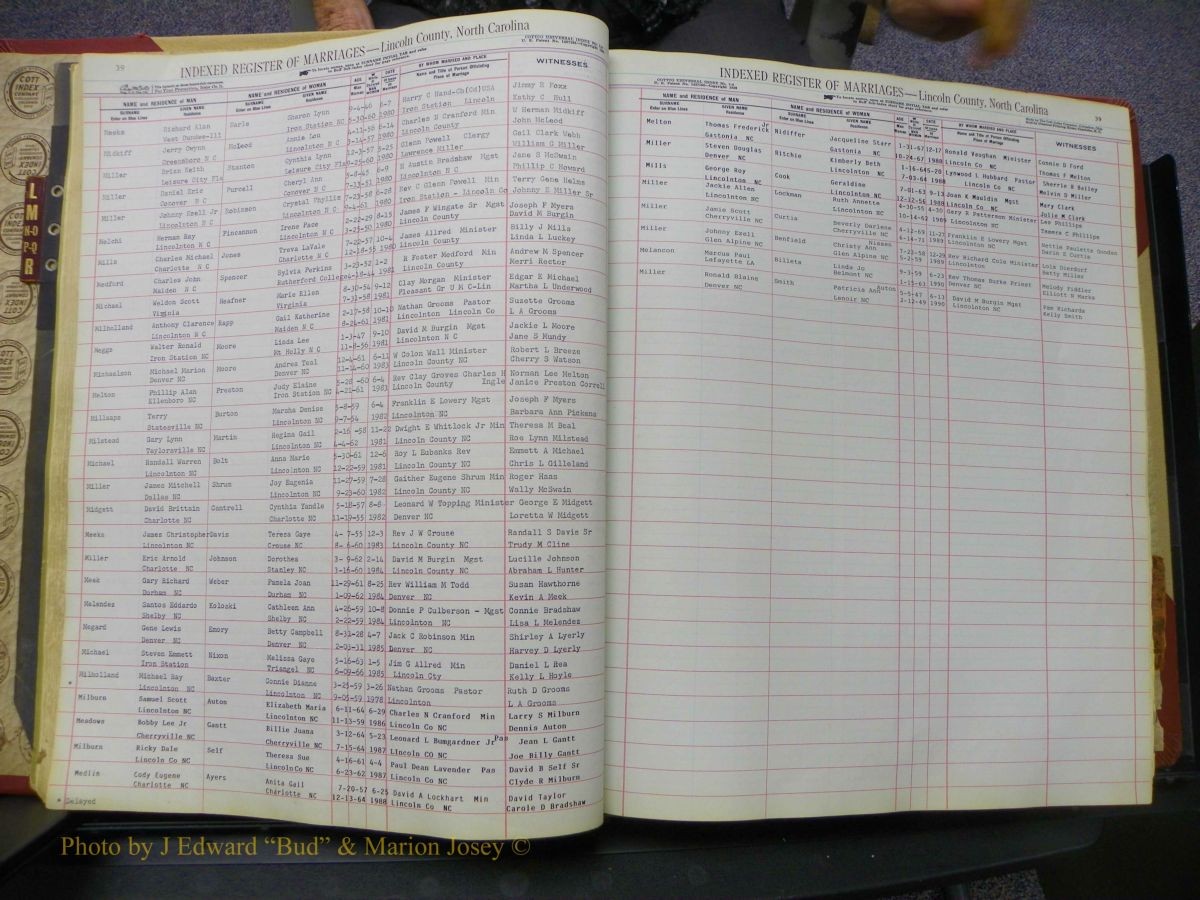 39
INDEXED REGISTER OF MARRIAGES—Lincoln County, North Carolina
NAME and RESIDENCE OF MAN NAME and RESIDENCE OF WOMAN BY WHOM MARRIED AND PLACE WITNESSES
Meeks Richard Alan Earle Sharon Lynn Harry C Hand-Ch(Cd)USA Jimmy E Foxx
Vest Dundee-Ill Iron Station NC Iron Station Lincoln Kathy C Hull
Midkiff Jerry Gwynn McLeod Janie Lee Charles N Cranford Min U Herman Midkiff
Greensboro N C Lincolnton N C Lincoln County John McLeod
Miller Brian Keith Stanton Cynthia Lynn Glenn Powell Clergy Gail Clark Webb
Leisure City Fla Leisure City Fla Lawrence Miller William G Miller
Miller Daniel Eric Purcell Cheryl Ann N Austin Bradshaw Mgst Jane S McSwain
Conover N C Conover N C Lincolnton N C Phillip C Howard
Miller Johnny Ezell Jr Robinson Crystal Phyllis Rev C Glenn Powell Min Terry Gene Helms
Lincolnton N C Iron Station - Lincoln Co Johnny E Miller Sr
Melchi Herman Ray Pincannon Irene Pace James F Wingate Sr Mgst Joseph F Myers
Lincolnton N C Lincolnton N C Lincoln County David M Burgin
Mills Charles Michael Jones Treva LaVale James Allred Minister Billy J Mills
Charlotte N C Lincolnton N C Lincoln County Linda L Luckey
Medford Charles John Spencer Sylvia Perkins R Foster Medford Min Andrew M Spencer
Maiden N C Rutherford College Lincoln County Merri Rector
Michael Weldon Scott Heafner Marie Ellen 8-30-54 9-12 Clay Morgan Minister Edgar E Michael
Virginia Virginia 7-31-58 1981 Pleasant Gr U M C-Lin Martha L Underwood
Milholland Anthony Clarence Rapp Gail Katherine 2-17-58 10-10 Nathan Grooms Pastor Suzette Grooms
Lincolnton N C Maiden N C 8-24-61 1981 Lincolnton Lincoln Co L A Grooms
Meggs Walter Ronald Moore Linda Lee 1-3-47 9-10 David M Burgin Mgst Jackie L Moore
Iron Station NC Mt Holly N C 11-8-56 1981 Lincolnton N C Jane S Mundy
Michaelson Michael Marion Moore Andrea Teal 12-4-61 6-11 W Colon Wall Minister Robert L Breeze
Denver NC Denver NC 11-14-60 1983 Lincoln County NC Cherry S Watson
Melton Phillip Alan Preston Judy Elaine 5-28-60 6-4 Rev Clay Groves Charles H Norman Lee Melton
Ellenboro NC Iron Station NC 4-21-61 1983 Lincoln County Ingle Janice Preston Correll
Millsaps Terry Burton Marsha Denise 5-8-59 6-4 Franklin E Lowery Mgst Joseph F Myers
Statesville NC Lincolnton NC 9-7-54 1982 Lincolnton NC Barbara Ann Pickens
Milstead Gary Lynn Martin Regina Gail 2-16-58 11-22 Dwight E Whitlock Jr Min Theresa M Beal
Taylorsville NC Lincolnton NC 4-4-62 1981 Lincoln County NC Roe Lynn Milstead
Michael Randall Warren Bolt Anna Marie 5-30-61 12-6 Roy L Eubanks Rev Emmett A Michael
Lincolnton NC Lincolnton NC 12-22-59 1981 Lincoln County NC Chris L Gilleland
Miller James Mitchell Shrum Joy Eugenia 11-27-59 7-28 Gaither Eugene Shrum Min Roger Haas
Dallas NC Lincolnton NC 9-23-60 1982 Lincoln County NC Wally McSwain
Midgett David Brittain Cantrell Cynthia Yandle 5-18-57 8-8 Leonard W Topping Minister George E Midgett
Charlotte NC Charlotte NC 11-19-55 1982 Denver NC Loretta W Midgett
Meeks James Christopher Davis Teresa Gaye 4- 7-55 12-3 Rev J W Crouse Randall S Davis Sr
Lincolnton NC Crouse NC 8- 6-60 1983 Lincoln County NC Trudy M Cline
Miller Eric Arnold Johnson Dorothea 3- 9-62 2-14 David M Burgin Mgst Lucille Johnson
Charlotte NC Stanley NC 3-16-60 1984 Lincoln County NC Abraham L Hunter
Meek Gary Richard Weber Pamela Joan 11-29-61 8-25 Rev William M Todd Susan Hawthorne
Durham NC Durham NC 1-09-62 1984 Denver NC Kevin A Meek
Melendez Santos Eddardo Koloski Cathleen Ann 4-26-59 10-8 Donnie P Culberson - Mgst Connie Bradshaw
Shelby NC Shelby NC 2-22-59 1984 Lincolnton NC Lisa L Melendez
Megard Gene Lewis Emory Betty Campbell 8-31-28 4-7 Jack C Robinson Min Shirley A Lyerly
Denver NC Denver NC 2-03-31 1985 Denver NC Harvey D Lyerly
Michael Steven Emmett Nixon Melissa Gaye 5-16-63 1-5 Jim G Allred Min Daniel L Rea
Iron Station Triangel NC 6-09-66 1985 Lincoln Cty Kelly L Hoyle
* Milholland Michael Ray Baxter Connie Dianne 3-25-59 3-26 Nathan Grooms Pastor Ruth D Grooms
Lincolnton NC Lincolnton NC 9-05-59 1978 Lincolnton L A Grooms
Milburn Samuel Scott Auton Elizabeth Maria 6-11-64 6-29 Charles N Cranford Min Larry S Milburn
Lincolnton NC Lincolnton NC 11-13-59 1986 Lincoln Co NC Dennis Auton
Meadows Bobby Lee Jr Gantt Billie Juana 3-12-64 5-23 Leonard L Bumgardner Jr Pas Jean L Gantt
Cherryville NC Cherryville NC 7-15-64 1987 Lincoln CO NC Joe Billy Gantt
Milburn Ricky Dale Self Theresa Sue 4-16-61 4-4 Paul Dean Lavender Pas David B Self Sr
Lincoln Co NC Lincoln Co NC 6-23-62 1987 Lincoln Co NC Clyde R Milburn
Medlin Cody Eugene Ayers Anita Gail 7-20-57 6-25 David A Lockhart Min David Taylor
Charlotte NC Charlotte NC 12-13-64 1988 Lincoln Co NC Carole D Bradshaw
* Delayed
INDEXED REGISTER OF MARRIAGES—Lincoln County, North Carolina
39
NAME and RESIDENCE OF MAN NAME and RESIDENCE OF WOMAN BY WHOM MARRIED AND PLACE WITNESSES
Melton Thomas Frederick Jr Ridiffer Jacqueline Starr 1-31-67 12-17 Ronald Vaughan Minister Connie D Ford
Gastonia NC Gastonia NC 10-24-67 1988 Lincoln Co NC Thomas F Melton
Miller Steven Douglas Ritchie Kimberly Beth Lynwood L Hubbard Pastor Sherrie B Bailey
Denver NC Lincolnton NC 7-03-64 1988 Lincoln Co NC Melvin S Miller
Mills George Roy Cook Geraldine 7-01-63 9-13 Joan K Mauldin Mgst Mary Clark
Lincolnton NC Lincolnton NC 12-12-56 1988 Lincoln Co NC Julie M Clark
Miller Jackie Allen Lockman Ruth Annette 4-30-55 4-30 Gary R Patterson Minister Lee Phillips
Lincolnton NC Lincolnton NC 10-14-62 1989 Lincolnton NC Tamera C Phillips
Miller Jamie Scott Curtis Beverly Darlene 4-12-69 11-23 Franklin E Lowery Mgst Nettie Paulette Gooden
Cherryville NC Cherryville NC 6-14-71 1989 Lincolnton NC Darin E Curtis
Miller Johnny Keener Benfield Christy Ann Nixsen 7-23-58 12-29 Rev Richard Cole Minister Lois Dierdorf
Glen Alpine NC Glen Alpine NC 5-2-59 1989 Lincolnton NC Betty Mickles
Melancon Marcus Paul Billets Linda Jo 9-3-59 6-23 Rev Thomas Burke Priest Melody Fiddler
Lafayette LA Belmont NC 1-15-63 1990 Denver NC Elliott N Marks
Miller Ronald Blaine Smith Patricia Ann Auton 9-5-47 6-13 David M Burgin Mgst Pam Richards
Denver NC Lenoir NC 2-11-49 1990 Lincolnton NC Kelly Smith
L M-N O-P-Q R
COTT INDEX COMPANY
Photo by J Edward “Bud” & Marion Josey ©